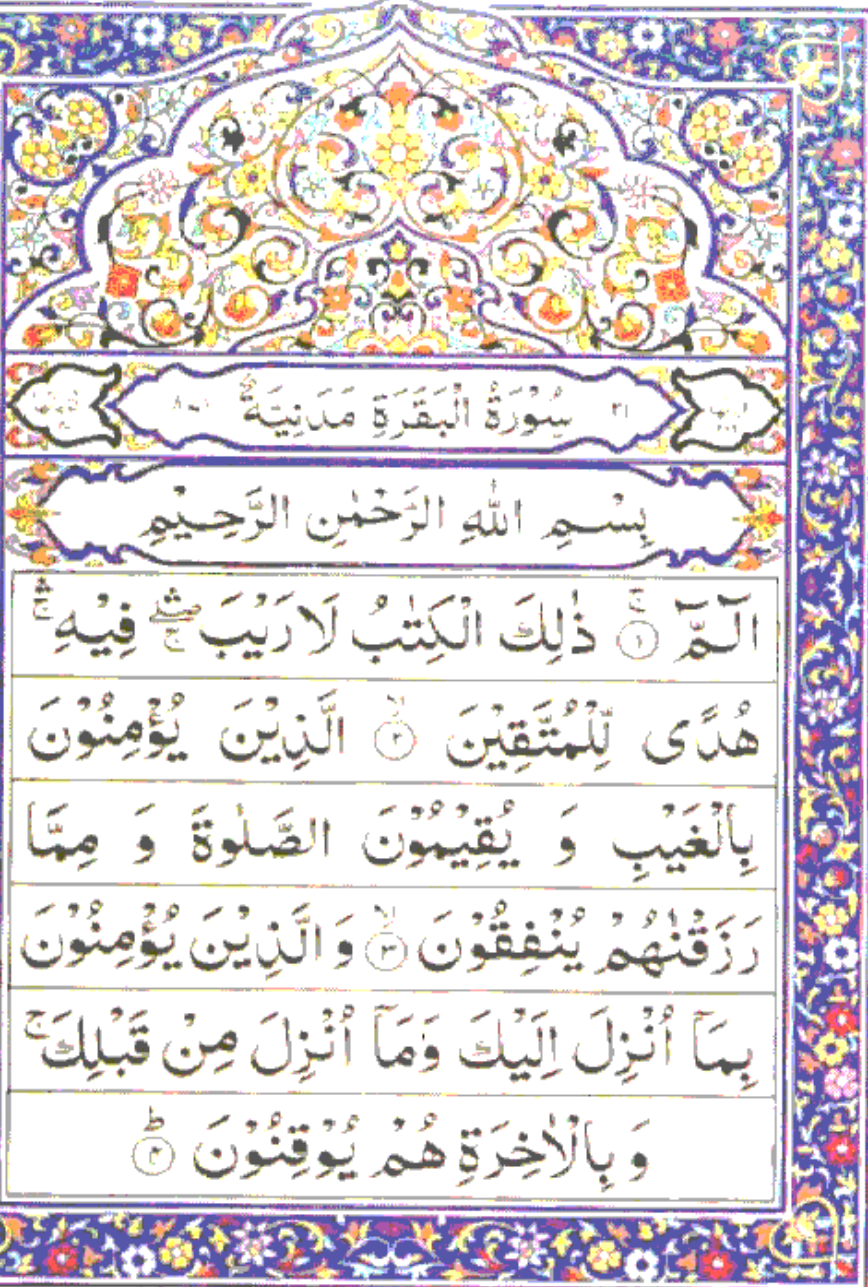 سُوْرَةُ الْبَقَرَةِ مَدَنِيَّةٌ
بِسْمِ اللّٰهِ الرَّحْمٰنِ الرَّحِيْمِ
الٓمّٓ ۚ ۝۱ ذٰلِكَ الْكِتٰبُ لَا رَيْبَ ۛۖۚ فِيْهِ ۛۚ
هُدًى لِّلْمُتَّقِيْنَ ۙ ۝۲ الَّذِيْنَ يُؤْمِنُوْنَ
بِالْغَيْبِ وَ يُقِيْمُوْنَ الصَّلٰوةَ وَ مِمَّا
رَزَقْنٰهُمْ يُنْفِقُوْنَ ۙ ۝۳ وَ الَّذِيْنَ يُؤْمِنُوْنَ
بِمَاۤ اُنْزِلَ اِلَيْكَ وَمَاۤ اُنْزِلَ مِنْ قَبْلِكَ ۚ
وَ بِالْاٰخِرَةِ هُمْ يُوْقِنُوْنَ ؕ ۝۴